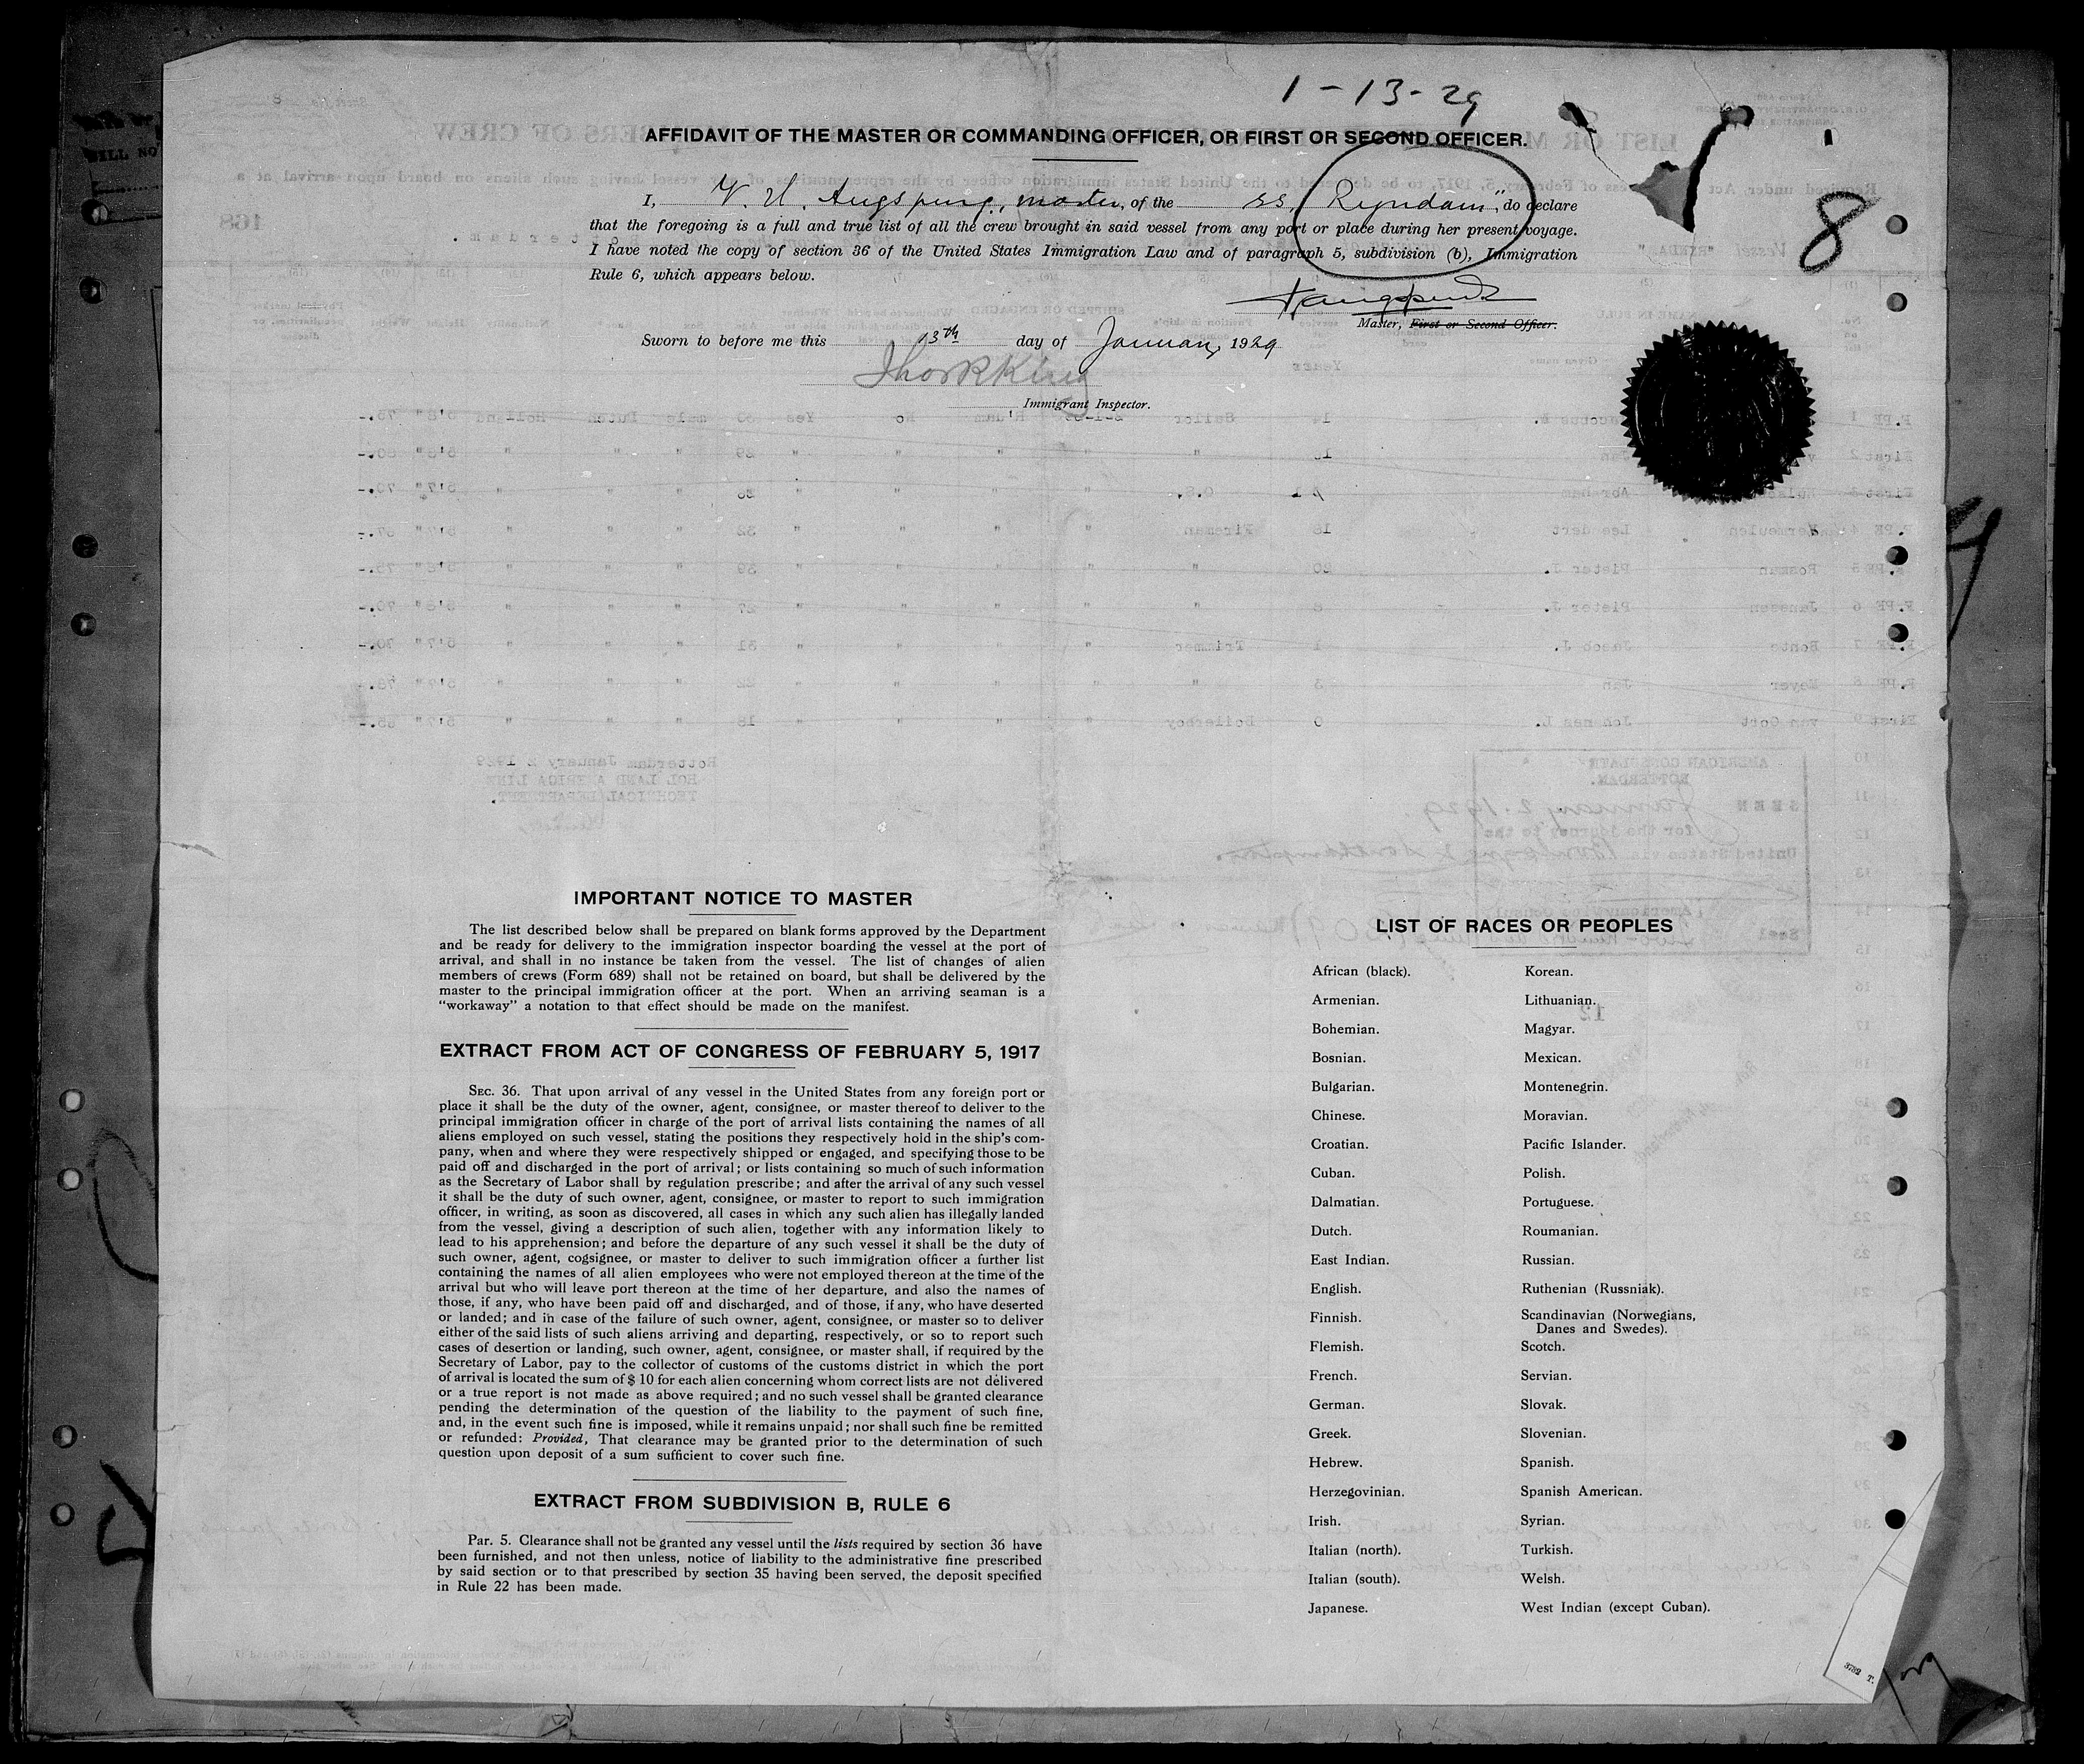 1-13-29
AFFIDAVIT OF THE MASTER OR COMMANDING OFFICER, OR FIRST OR SECOND OFFICER.
I, master, of the ss. "Ryndam", do declare
that the foregoing is a full and true list of all the crew brought in said vessel from any port or place during her present voyage.
I have noted the copy of section 36 of the United States Immigration Law and of paragraph 5, subdivision (b), Immigration
Rule 6, which appears below.
8
Master, First or Second Officer.
Sworn to before me this 13th day of January, 1929
Immigrant Inspector.
IMPORTANT NOTICE TO MASTER
The list described below shall be prepared on blank forms approved by the Department
and be ready for delivery to the immigration inspector boarding the vessel at the port of
arrival, and shall in no instance be taken from the vessel. The list of changes of alien
members of crews (Form 689) shall not be retained on board, but shall be delivered by the
master to the principal immigration officer at the port. When an arriving seaman is a
"workaway" a notation to that effect should be made on the manifest.
EXTRACT FROM ACT OF CONGRESS OF FEBRUARY 5, 1917
SEC. 36. That upon arrival of any vessel in the United States from any foreign port or
place it shall be the duty of the owner, agent, consignee, or master thereof to deliver to the
principal immigration officer in charge of the port of arrival lists containing the names of all
aliens employed on such vessel, stating the positions they respectively hold in the ship's com-
pany, when and where they were respectively shipped or engaged, and specifying those to be
paid off and discharged in the port of arrival; or lists containing so much of such information
as the Secretary of Labor shall by regulation prescribe; and after the arrival of any such vessel
it shall be the duty of such owner, agent, consignee, or master to report to such immigration
officer, in writing, as soon as discovered, all cases in which any such alien has illegally landed
from the vessel, giving a description of such alien, together with any information likely to
lead to his apprehension; and before the departure of any such vessel it shall be the duty of
such owner, agent, cogsignee, or master to deliver to such immigration officer a further list
containing the names of all alien employees who were not employed thereon at the time of the
arrival but who will leave port thereon at the time of her departure, and also the names of
those, if any, who have been paid off and discharged, and of those, if any, who have deserted
or landed; and in case of the failure of such owner, agent, consignee, or master so to deliver
either of the said lists of such aliens arriving and departing, respectively, or so to report such
cases of desertion or landing, such owner, agent, consignee, or master shall, if required by the
Secretary of Labor, pay to the collector of customs of the customs district in which the port
of arrival is located the sum of $ 10 for each alien concerning whom correct lists are not delivered
or a true report is not made as above required; and no such vessel shall be granted clearance
pending the determination of the question of the liability to the payment of such fine,
and, in the event such fine is imposed, while it remains unpaid; nor shall such fine be remitted
or refunded: Provided, That clearance may be granted prior to the determination of such
question upon deposit of a sum sufficient to cover such fine.
EXTRACT FROM SUBDIVISION B, RULE 6
Par. 5. Clearance shall not be granted any vessel until the lists required by section 36 have
been furnished, and not then unless, notice of liability to the administrative fine prescribed
by said section or to that prescribed by section 35 having been served, the deposit specified
in Rule 22 has been made.
LIST OF RACES OR PEOPLES
African (black).
Armenian.
Bohemian.
Bosnian.
Bulgarian.
Chinese.
Croatian.
Cuban.
Dalmatian.
Dutch.
East Indian.
English.
Finnish.
Flemish.
French.
German.
Greek.
Hebrew.
Herzegovinian.
Irish.
Italian (north).
Italian (south).
Japanese.
Korean.
Lithuanian.
Magyar.
Mexican.
Montenegrin.
Moravian.
Pacific Islander.
Polish.
Portuguese.
Roumanian.
Russian.
Ruthenian (Russniak).
Scandinavian (Norwegians,
Danes and Swedes).
Scotch.
Servian.
Slovak.
Slovenian.
Spanish.
Spanish American.
Syrian.
Turkish.
Welsh.
West Indian (except Cuban).